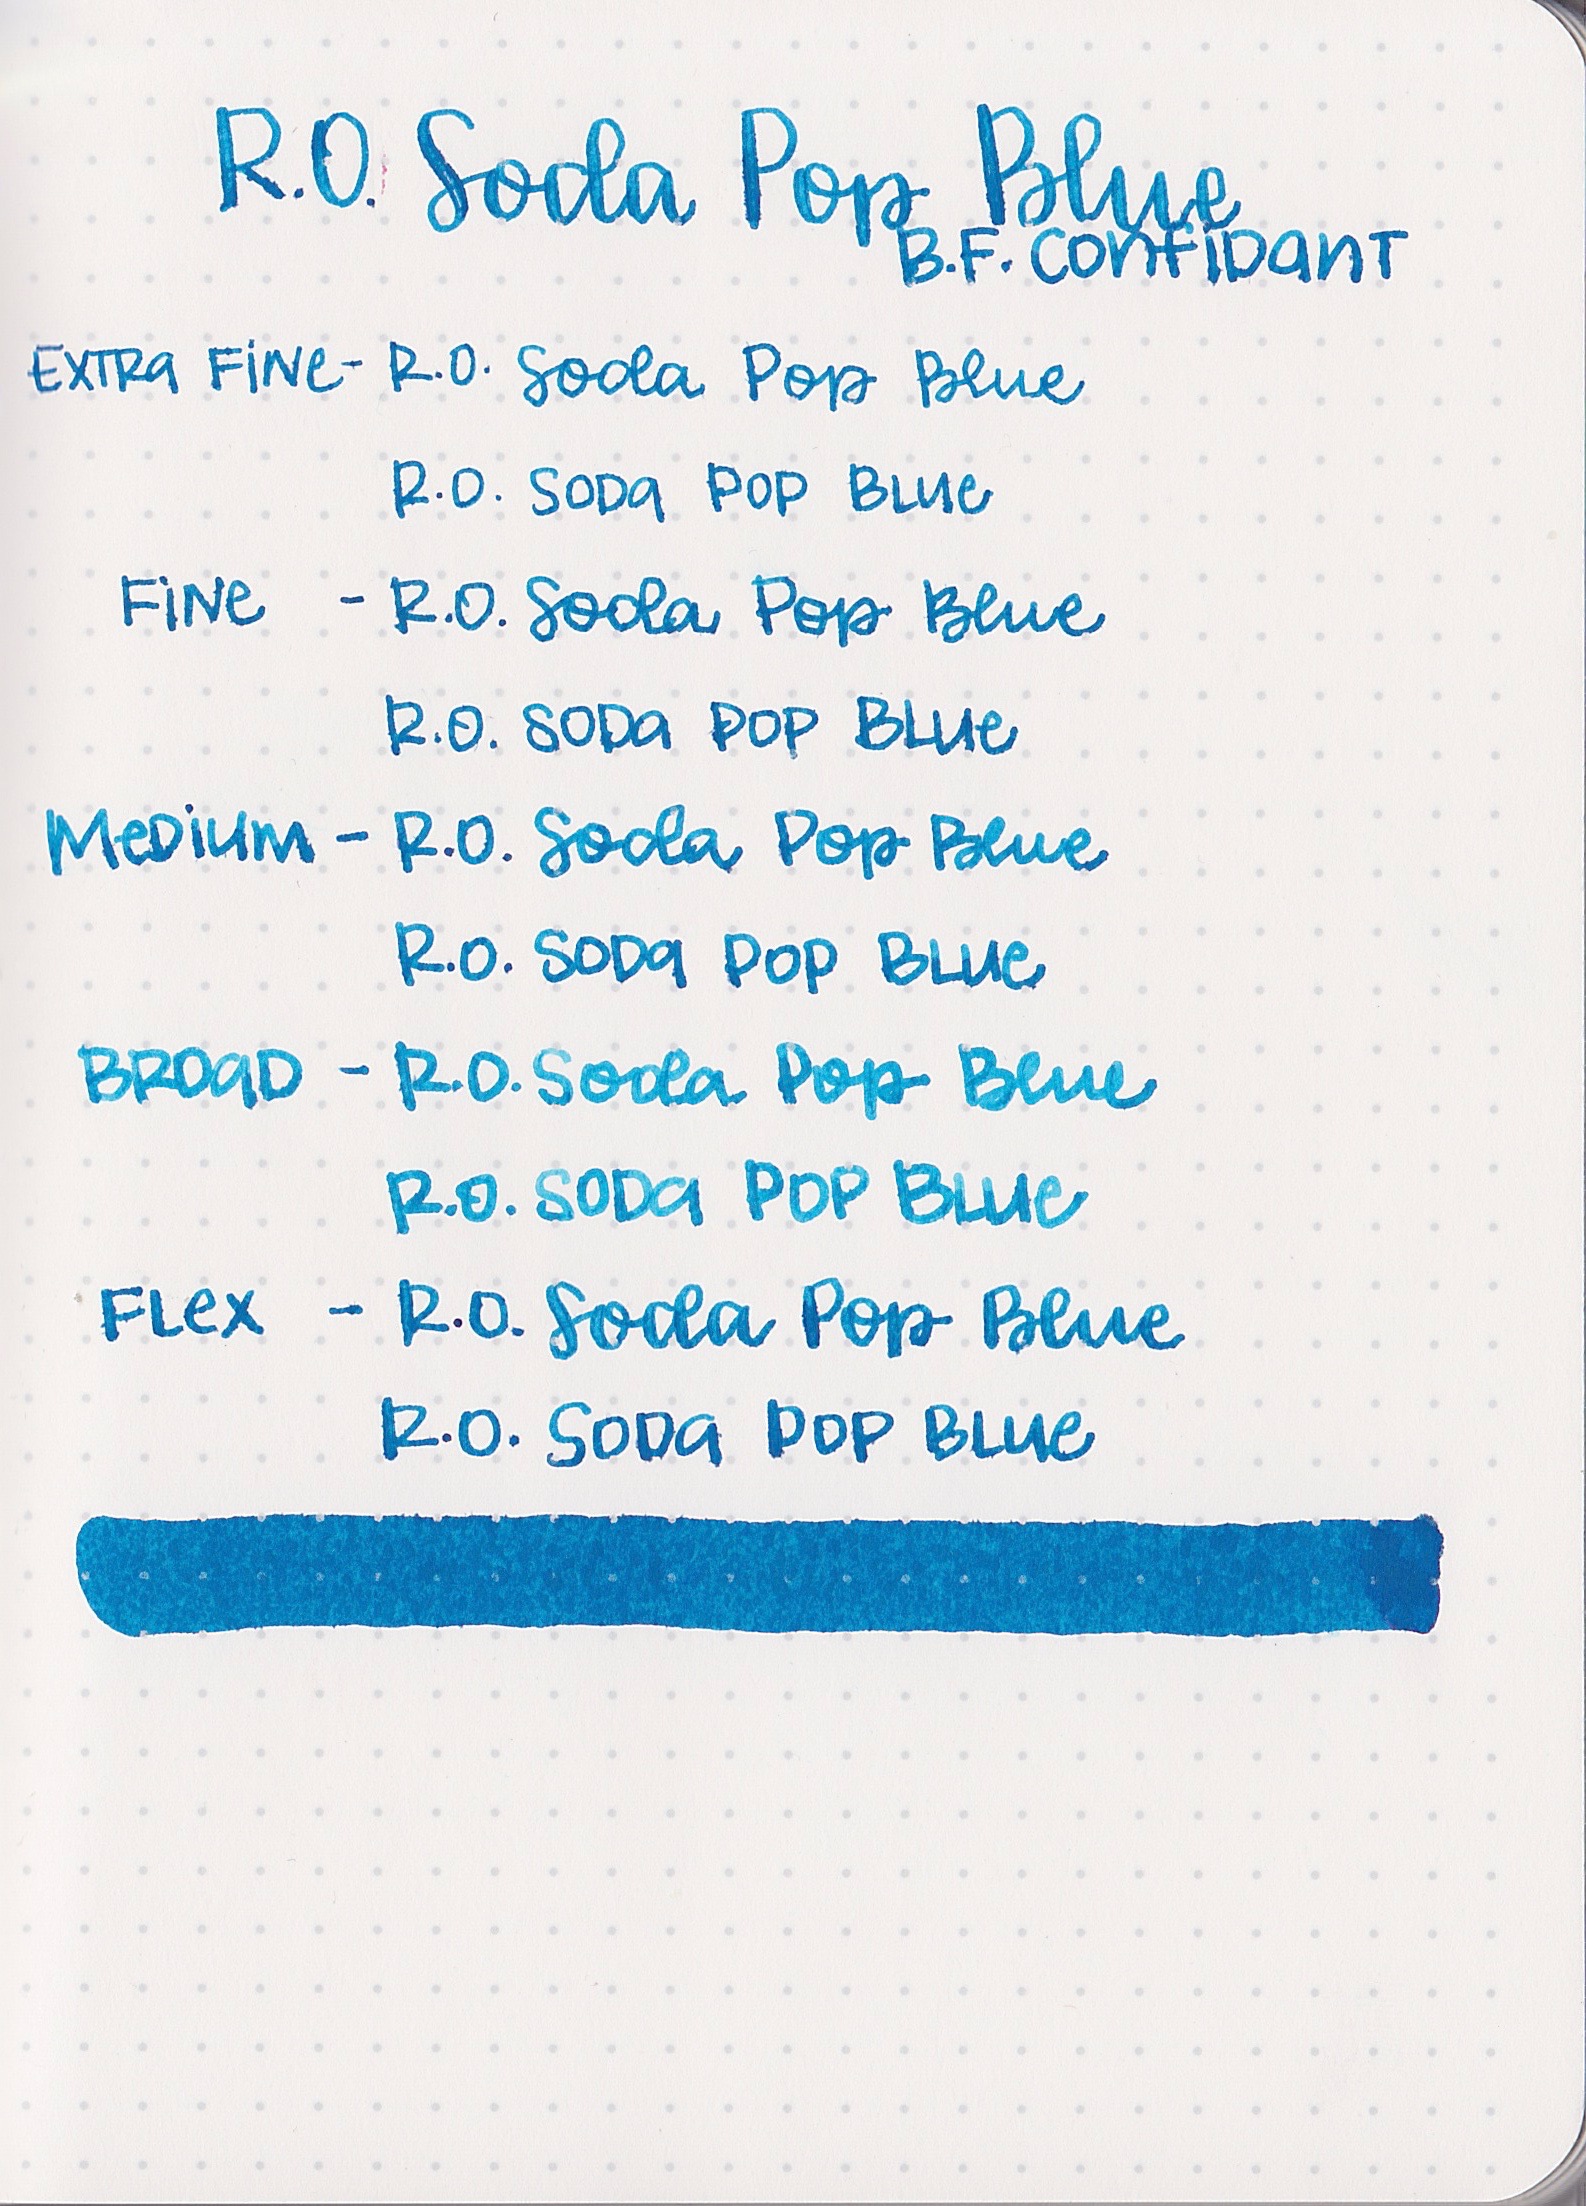 R.O. Soda Pop Blue
B.F. Confidant
Extra Fine - R.O. Soda Pop Blue
R.O. Soda Pop Blue
Fine - R.O. Soda Pop Blue
R.O. Soda Pop Blue
Medium - R.O. Soda Pop Blue
R.O. Soda Pop Blue
Broad - R.O. Soda Pop Blue
R.O. Soda Pop Blue
Flex - R.O. Soda Pop Blue
R.O. Soda Pop Blue